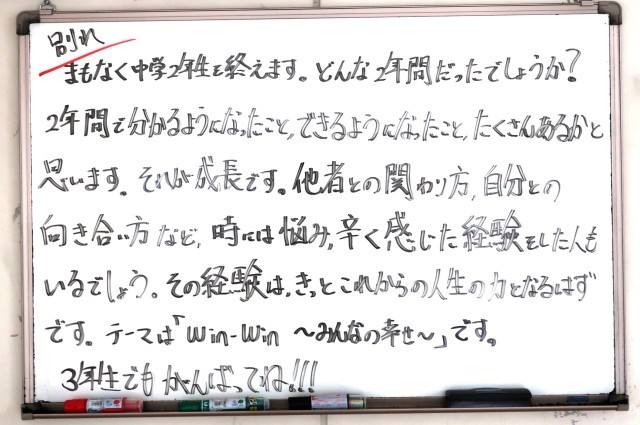 別れ
まもなく中学2年生を終えます。どんな2年間だったでしょうか?
2年間で分かるようになったこと,できるようになったこと,たくさんあるかと
思います。それが成長です。他者との関わり方,自分との
向き合い方など,時には悩み,辛く感じた経験をした人も
いるでしょう。その経験は,きっとこれからの人生の力となるはず
です。テーマは「Win-Win 〜みんなの幸せ〜」です。
3年生でもがんばってね!!!